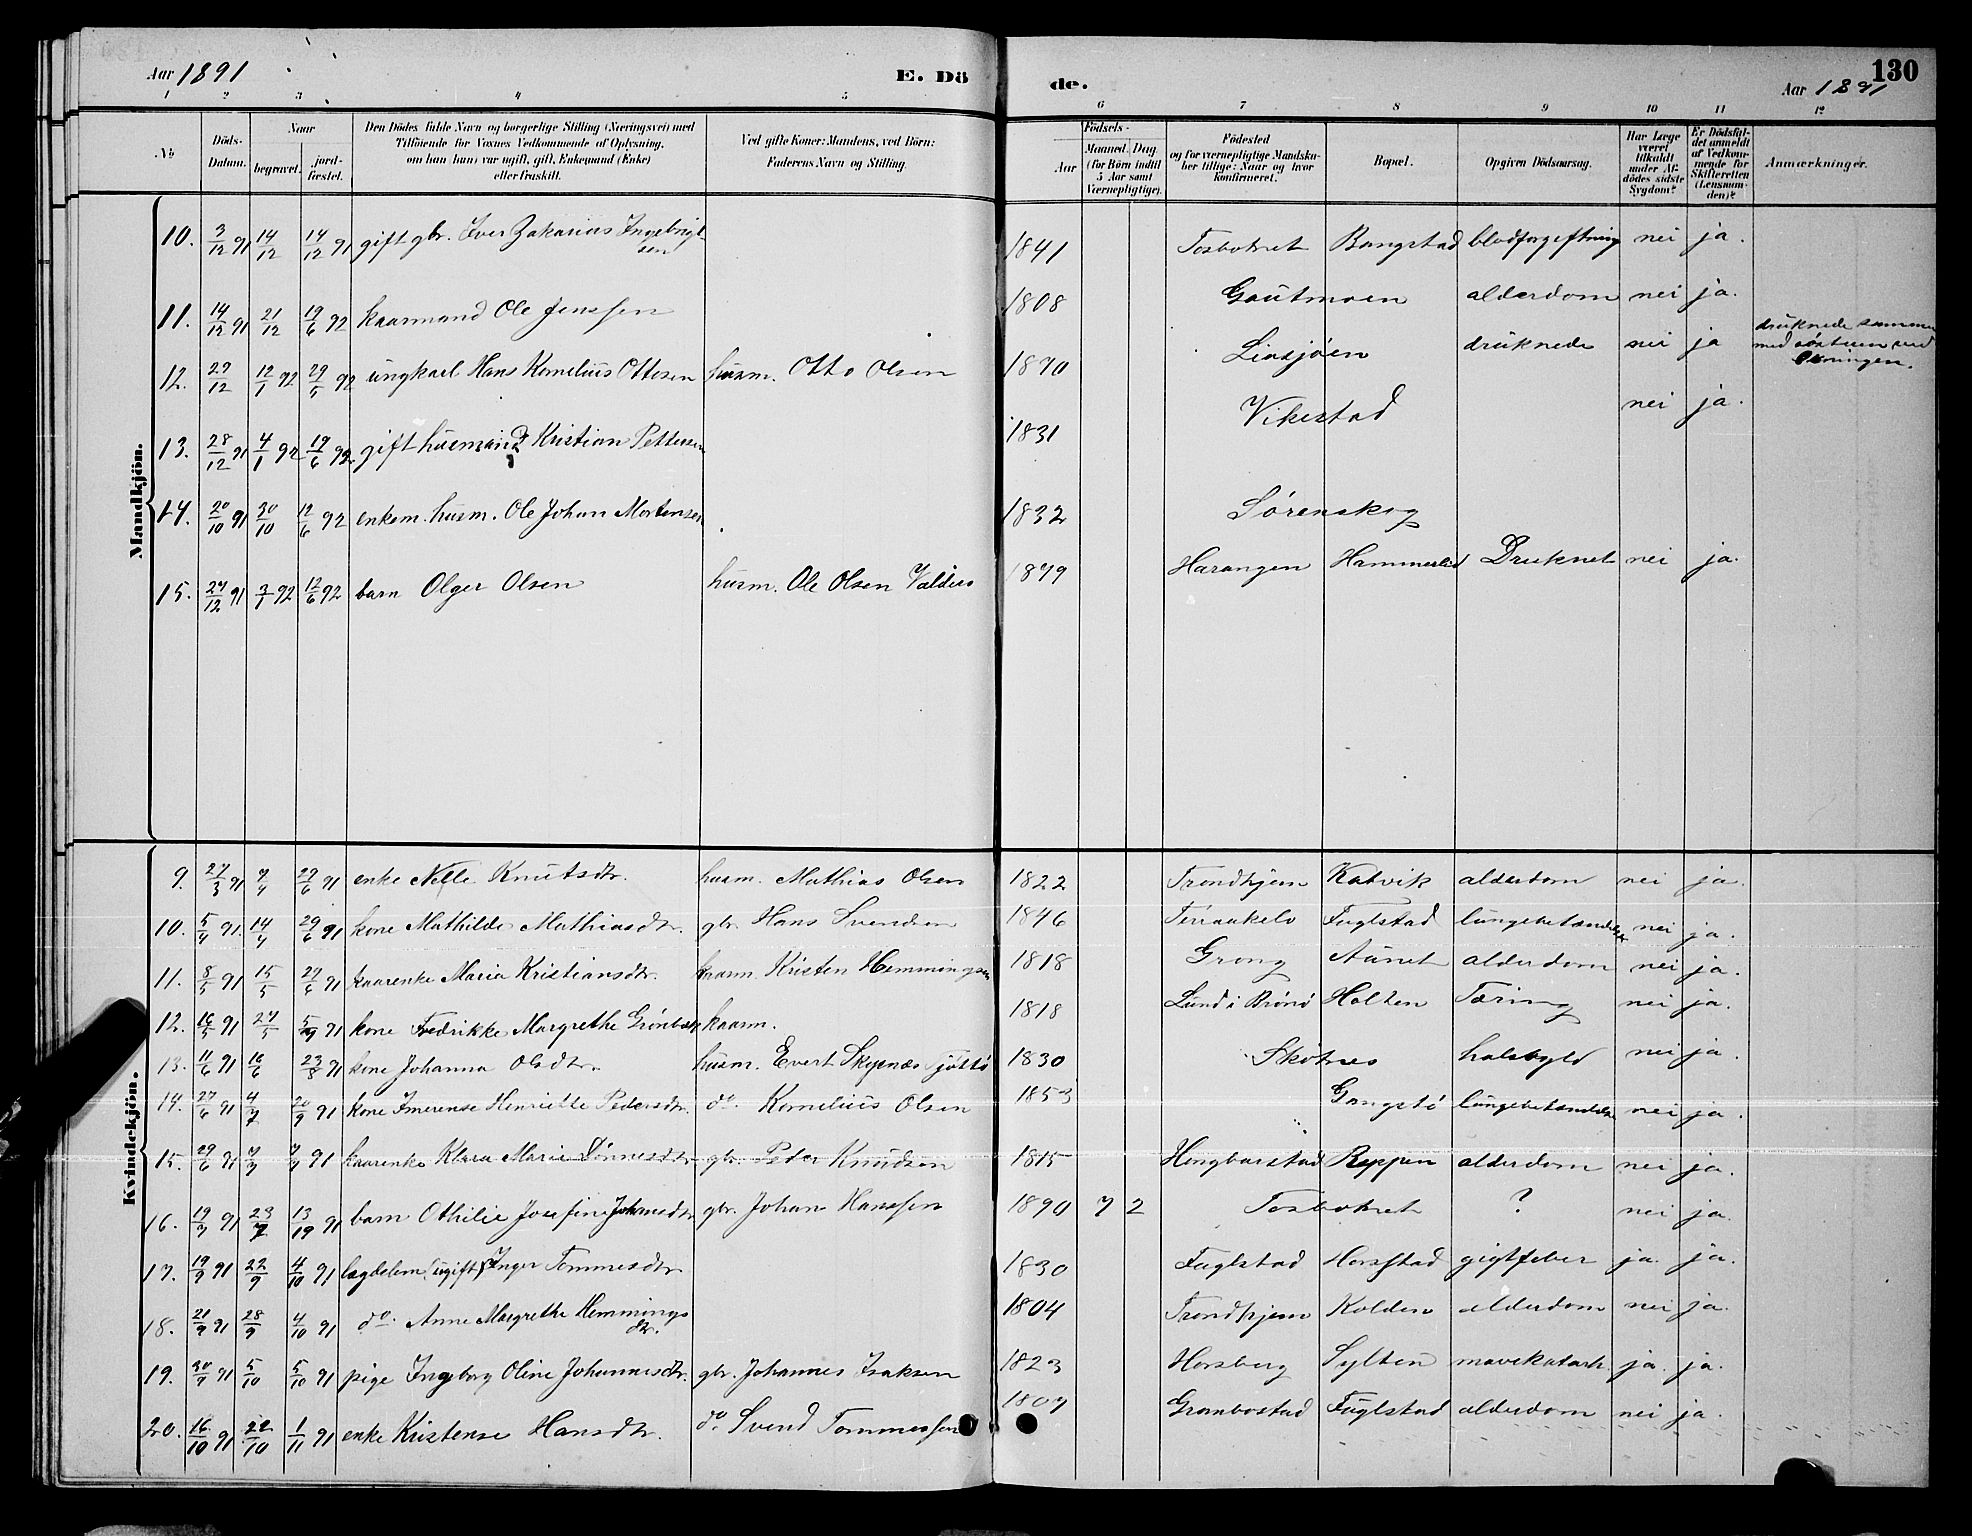 Aar 1891 E. Dö de. Aar 1891 130
1 2 3 4 5 6 7 8 9 10 11 12
No Döds-Datum. Naar begravet. jordfæstet. Den Dödes fulde Navn og borgerlige Stilling (Næringsvei) med Tilföiende for Voxnes Vedkommende af Oplysning, om han (hun) var ugift, gift, Enkemand (Enke) eller fraskilt. Ved gifte Koner: Mandens, ved Börn: Faderens Navn og Stilling. Födsels- Aar Maaned. Dag. (for Börn indtil 5 Aar samt Værnepligtige). Födested og for værnepligtige Mandskaber tillige: Naar og hvor konfirmeret. Bopæl. Opgiven Dödsaarsag. Har Læge været tilkaldt under Afdödes sidste Sygdom? Er Dödsfaldet anmeldt af Vedkommende for Skifteretten (Lensmanden)? Anmærkninger.
Mandkjön.
10. 3/12 91 14/12 14/12 91 gift gbr. Iver Zakarias Ingebrigtsen 1841 Tosbotnet Bangstad blodforgiftning nei ja.
11. 14/12 91 21/12 19/6 92 kaarmand Ole Jenssen 1808 Gautmoen alderdom nei ja.
12. 29/12 12/1 92 29/5 92 ungkarl Hans Kornelius Ottosen husm. Otto Olsen 1870 druknede nei ja druknede sammen med
13. 28/12 91 4/1 92 19/6 92 gift husmand Kristian Pettersen 1831 Vikestad nei ja.
14. 20/10 91 30/10 12/6 92 enkem. husm. Ole Johan Mortensen 1832 Sørenskog
15. 27/12 91 3/1 92 12/6 92 barn Olger Olsen husm. Ole Olsen 1879 Harangen Druknet nei ja.
Kvindekjön.
9. 27/3 91 7/4 29/6 91 enke Nelle Knutsdtr. husm. Mathias Olsen 1822 Trondhjem Katvik alderdom nei ja.
10. 5/4 91. 14/4 29/6 91 kone Mathilde Mathiasdtr. gbr. Hans Svendsen 1846 Terraakelv Fuglstad lungebetændelse nei ja.
11. 8/5 91 15/5 29/6 91 kaarenke Maria Kristiansdtr. kaarm. Kristen Hemmingsen 1818 Grong Aunet alderdom nei ja.
12. 16/5 91 27/5 5/9 91 kone Fredrikke Margrethe Grønbæk kaarm. 1818 Lund i Brønø Holten Tæring nei ja.
13. 11/6 91 16/6 23/8 91 kone Johanna Olsdtr. husm. Evert 1830 Skotnes halsbyld nei ja.
14. 27/6 91 4/7 20/9 91 kone Imerense Henriette Pedersdtr. do. Kornelius Olsen 1853 Gangstø lungebetændelse nei ja.
15. 29/6 91 kaarenke Klara Marie Tønnesdtr. gbr. Peder Knudsen 1815 Reppen alderdom nei ja.
16. 91 91 barn Othilie Josefine Johansdtr. gbr. Johan Hanssen 1890 7 2 Tosbotnet ? nei ja.
17. 19/9 91 22/9 4/10 91 lægdelem (ugift) Inger Tommesdtr. 1830 Fuglstad Horsstad gigtfeber ja. ja.
18. 21/9 91 28/9 4/10 91 do. Anne Margrethe Hemmingsdtr. 1804 Trondhjem Kolden alderdom nei ja.
19. 30/9 91 5/10 5/10 91 pige Ingeborg Oline Johannesdtr. gbr. Johannes Isaksen 1823 Horsberg Sylten mavekatarh. ja. ja.
20. 16/10 91 22/10 1/11 91 enke Kristense Hansdtr. do Svend Tommessen 1807 Grambostad Fuglstad alderdom nei ja.